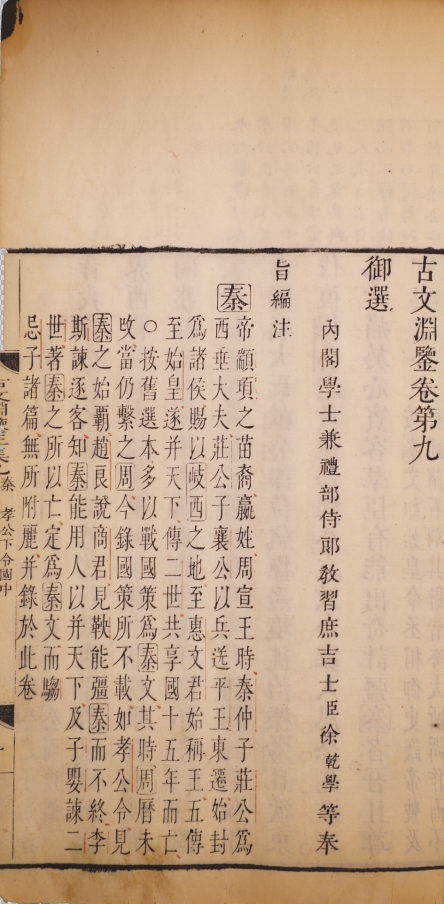 古文淵鑒卷第九
御選
內閣學士兼禮部侍郎教習庶吉士臣徐乾學等奉
旨編注
秦
帝顓頊之苗裔嬴姓周宣王時秦仲子莊公為
西垂大夫莊公子襄公以兵送平王東遷始封
為諸侯賜以岐西之地至惠文君始稱王五傳
至始皇遂并天下傳二世共享國十五年而亡
○按舊選本多以戰國策為秦文其時周曆未
改當仍繫之周今錄國策所不載如孝公令見
秦之始霸趙良說商君見鞅能彊秦而不終李
斯諫逐客知秦能用人以并天下及子嬰諫二
世著秦之所以亡定為秦文而騶
忌子諸篇無所附麗并錄於此卷
秦 孝公下令國中